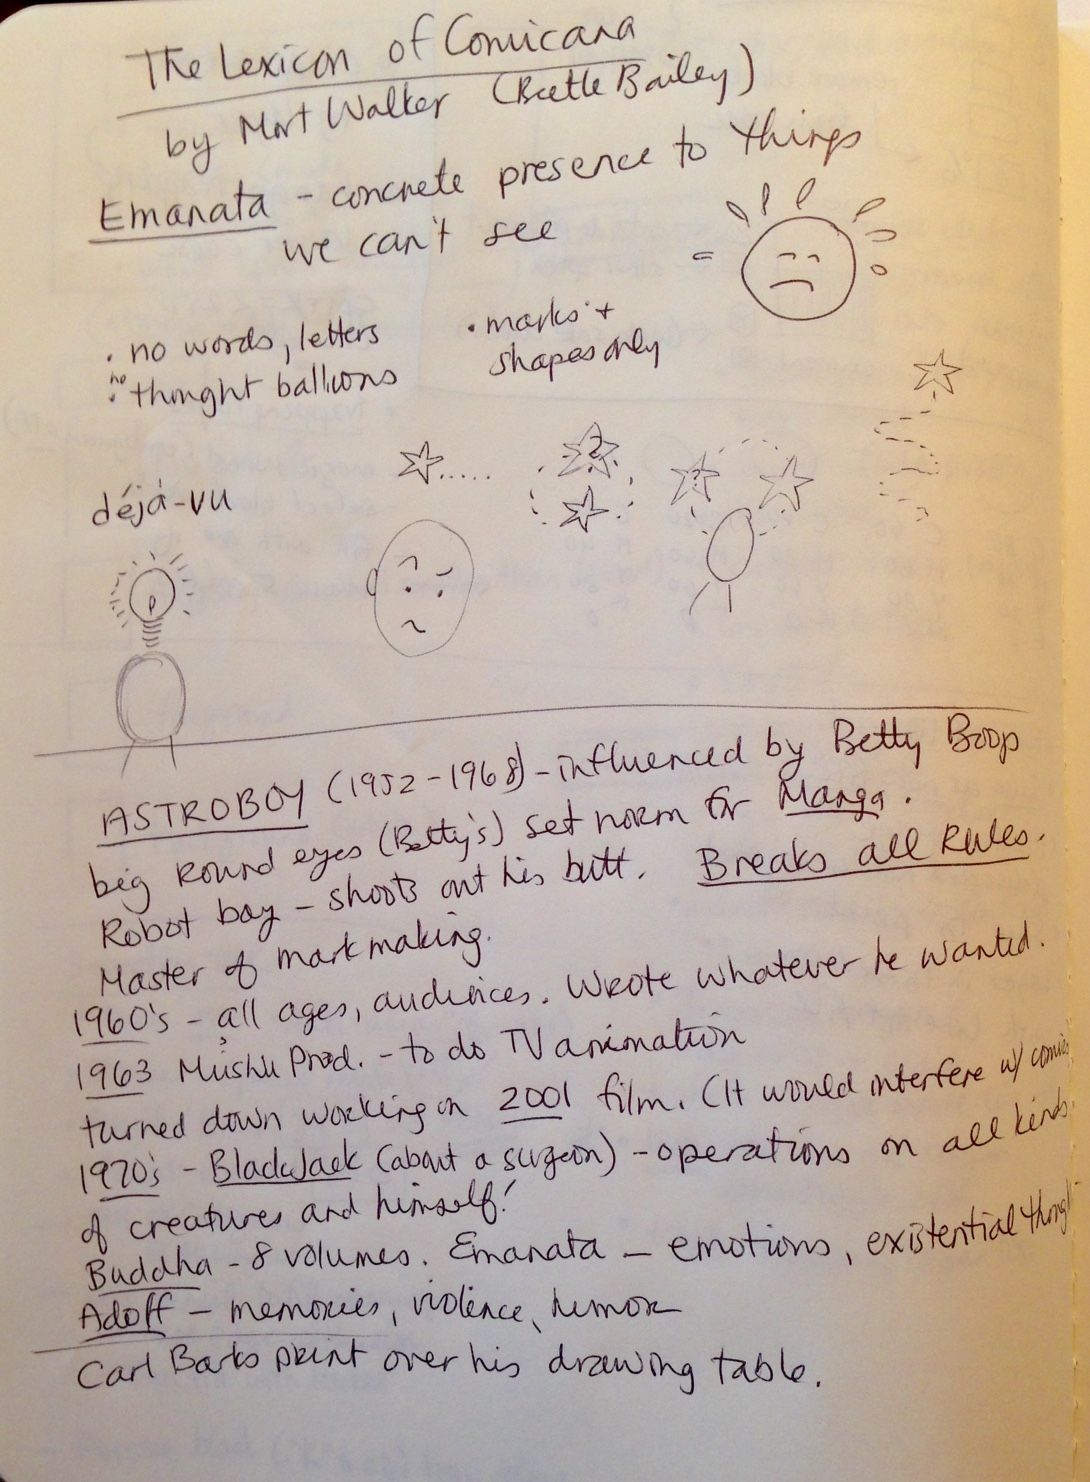 The Lexicon of Comicana
by Mort Walker (Beetle Bailey)
Emanata - concrete presence to things
we can't see
. no words, letters
: no thought balloons
. marks +
shapes only
déjà-vu
?
ASTROBOY (1952-1968) - influenced by Betty Boop
big round eyes (Betty's) set norm for Manga.
Robot boy - shoots out his butt. Breaks all Rules.
Master of mark making.
1960's - all ages, audiences. Wrote whatever he wanted.
1963 Mushu Prod. - to do TV animation
turned down working on 2001 film. (It would interfere w/ comics
1970's - BlackJack (about a surgeon) - operations on all kinds
of creatures and himself!
Buddha - 8 volumes. Emanata - emotions, existential
Adoff - memories, violence, humor
Carl Barks print over his drawing table.